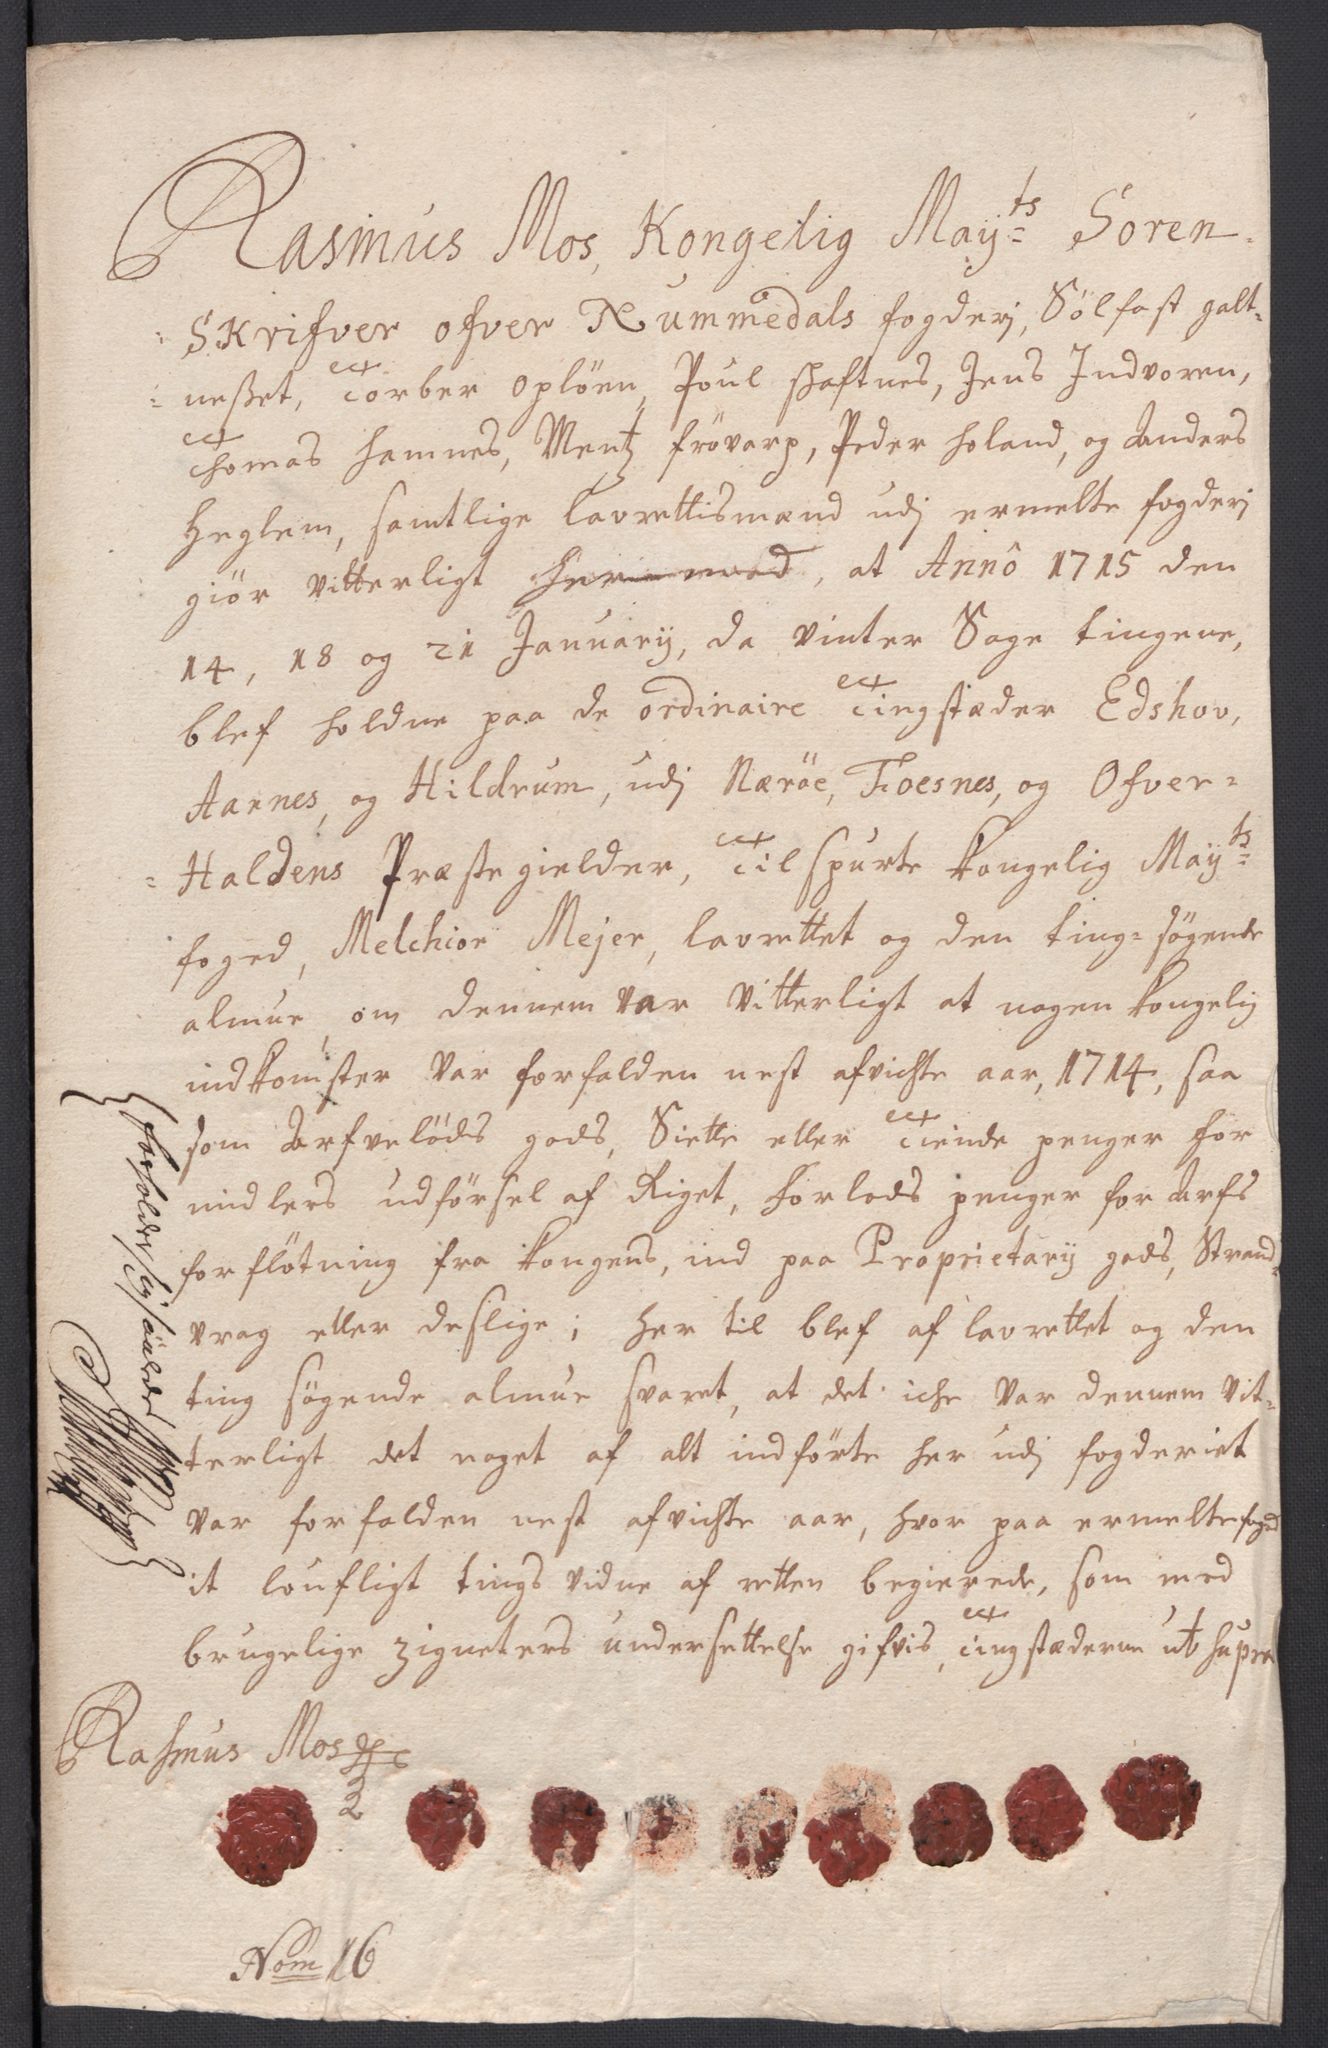 Rasmus Mos, Kongelig May:ts Soren-
Skrifver ofver Nummedals fogderj, Sölfast galt-
nesset, Torber Oplöen, Poul Skaftnes, Jens Indvoren,
Thomas Hamnes, Mentz Frövarp, Peder Holand, og Anders
Heglem, samtlige lavrettismænd udj ermelte fogderj
giör vitterligt, at Annô 1715 den
14, 18 og 21 Januarij, da vinter Sage tingene,
blef holdne paa de ordinaire Tingstæder Edshov,
Aarnes, og Hildrum, udj Næröe, Foesnes, og Ofver-
Haldens Præstegielder, Tilspurte Kongelig Maÿ:ts
foged, Melchior Mejer, lavrettet og den ting-sögende
almue, om dennem var vitterligt at nogen Kongelig
indkomster var forfalden nest afvichte aar, 1714, saa
som Arfvelöds gods, Siette eller Tiende penger for
midlers udförsel af Riget, Forlods penger for Arfs
forflötning fra Kongens, ind paa Proprietarij gods, Strand-
vrag eller deslige; her til blef af lavrettet og den
ting sögende almue svaret, at det iche var dennem vit-
terligt det noget af alt indförte her udj fogderiet
var forfalden nest afvichte aar, hvor paa ermelte foged
it loufligt tings vidne af retten begierede, som med
brugelige zigneters undersettelse gifvis, Tingstæderne ut supra
Rasmus Mos
Nom 16
forholder sig saaledes